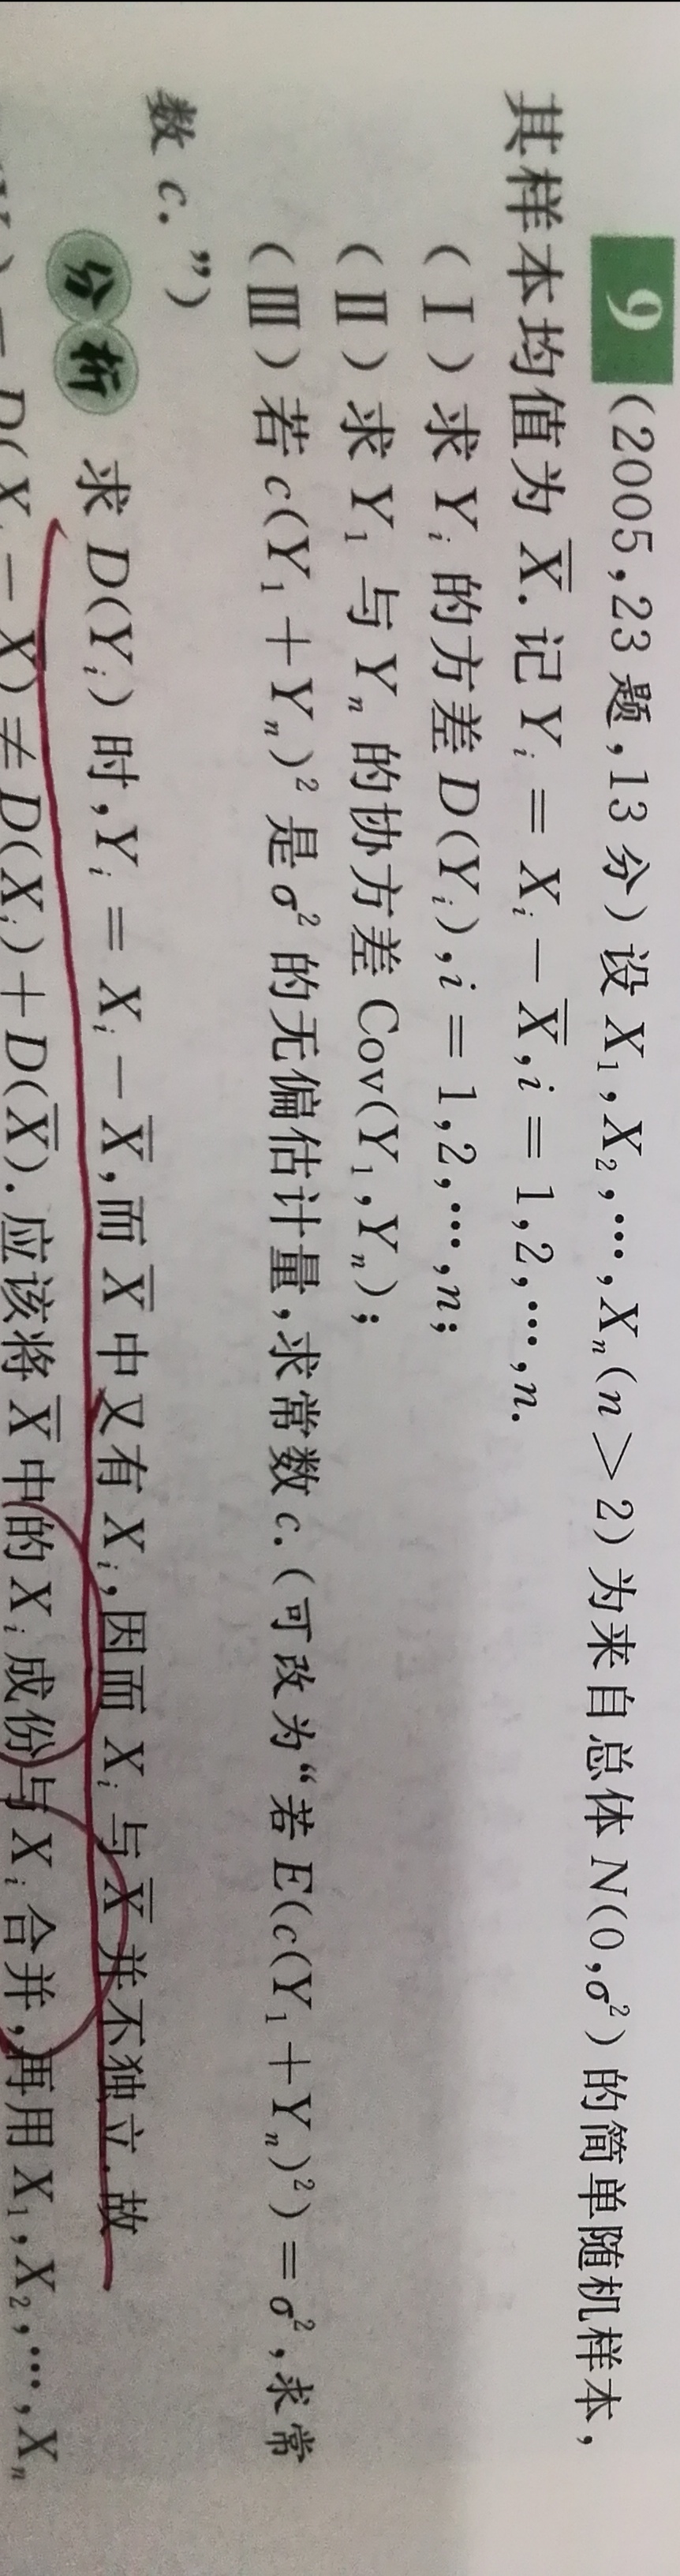 9 (2005,23题,13分)设 X₁,X₂,…,Xₙ(n>2)为来自总体 N(0,σ²)的简单随机样本,
其样本均值为 X̅. 记 Yᵢ = Xᵢ − X̅, i = 1,2,…,n.
(Ⅰ)求 Yᵢ 的方差 D(Yᵢ), i = 1,2,…,n;
(Ⅱ)求 Y₁ 与 Yₙ 的协方差 Cov(Y₁,Yₙ);
(Ⅲ)若 c(Y₁+Yₙ)² 是 σ² 的无偏估计量,求常数 c. (可改为“若 E(c(Y₁+Yₙ)²) = σ²,求常
数 c.”)
分析 求 D(Yᵢ)时,Yᵢ = Xᵢ − X̅,而 X̅ 中又有 Xᵢ,因而 Xᵢ 与 X̅ 并不独立. 故
D(Xᵢ − X̅) ≠ D(Xᵢ) + D(X̅). 应该将 X̅ 中的 Xᵢ 成份与 Xᵢ 合并,再用 X₁,X₂,…,Xₙ